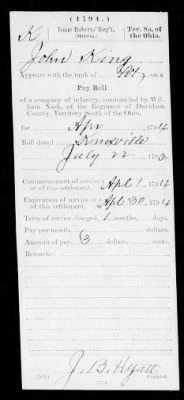 (1794.)
K Isaac Roberts' Reg't. Ter. So. of the Ohio.
John King
Appears with the rank of Pvt on a
Pay Roll
of a company of infantry, commanded by William Nash, of the Regiment of Davidson County, Territory South of the Ohio,
for Apr , 1794.
Roll dated Knoxville
July 22 , 179
Commencement of service or of this settlement, Apl 1 , 1794
Expiration of service or of this settlement, Apl 30 , 1794
Term of service charged, 1 months, days.
Pay per month, dollars, cents.
Amount of pay, 3 dollars, cents.
Remarks:
J. B. Hyatt
Copyist.